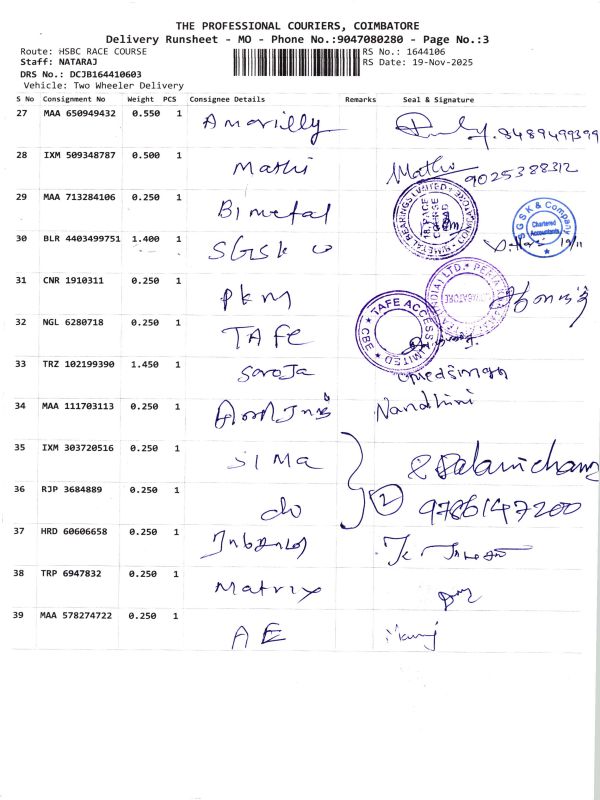 THE PROFESSIONAL COURIERS, COIMBATORE
Delivery Runsheet - MO - Phone No.:9047080280 - Page No.:3
Route: HSBC RACE COURSE RS No.: 1644106
Staff: NATARAJ RS Date: 19-Nov-2025
DRS No.: DCJB164410603
Vehicle: Two Wheeler Delivery
S No Consignment No Weight PCS Consignee Details Remarks Seal & Signature
27 MAA 650949432 0.550 1 Amarilly 8489499399
28 IXM 509348787 0.500 1 Mathi Mathi 9025388312
29 MAA 713284106 0.250 1 Bimetal
30 BLR 4403499751 1.400 1 SGSK SGSK & Company Chartered Accountants 19/11
31 CNR 1910311 0.250 1 PKM
32 NGL 6280718 0.250 1 TAFE TAFE ACCESS LIMITED CBE
33 TRZ 102199390 1.450 1 Saroja
34 MAA 111703113 0.250 1 Nandhini
35 IXM 303720516 0.250 1 SIMA
36 RJP 3684889 0.250 1 do 2 9786147200
37 HRD 60606658 0.250 1
38 TRP 6947832 0.250 1 Matrix
39 MAA 578274722 0.250 1 AE